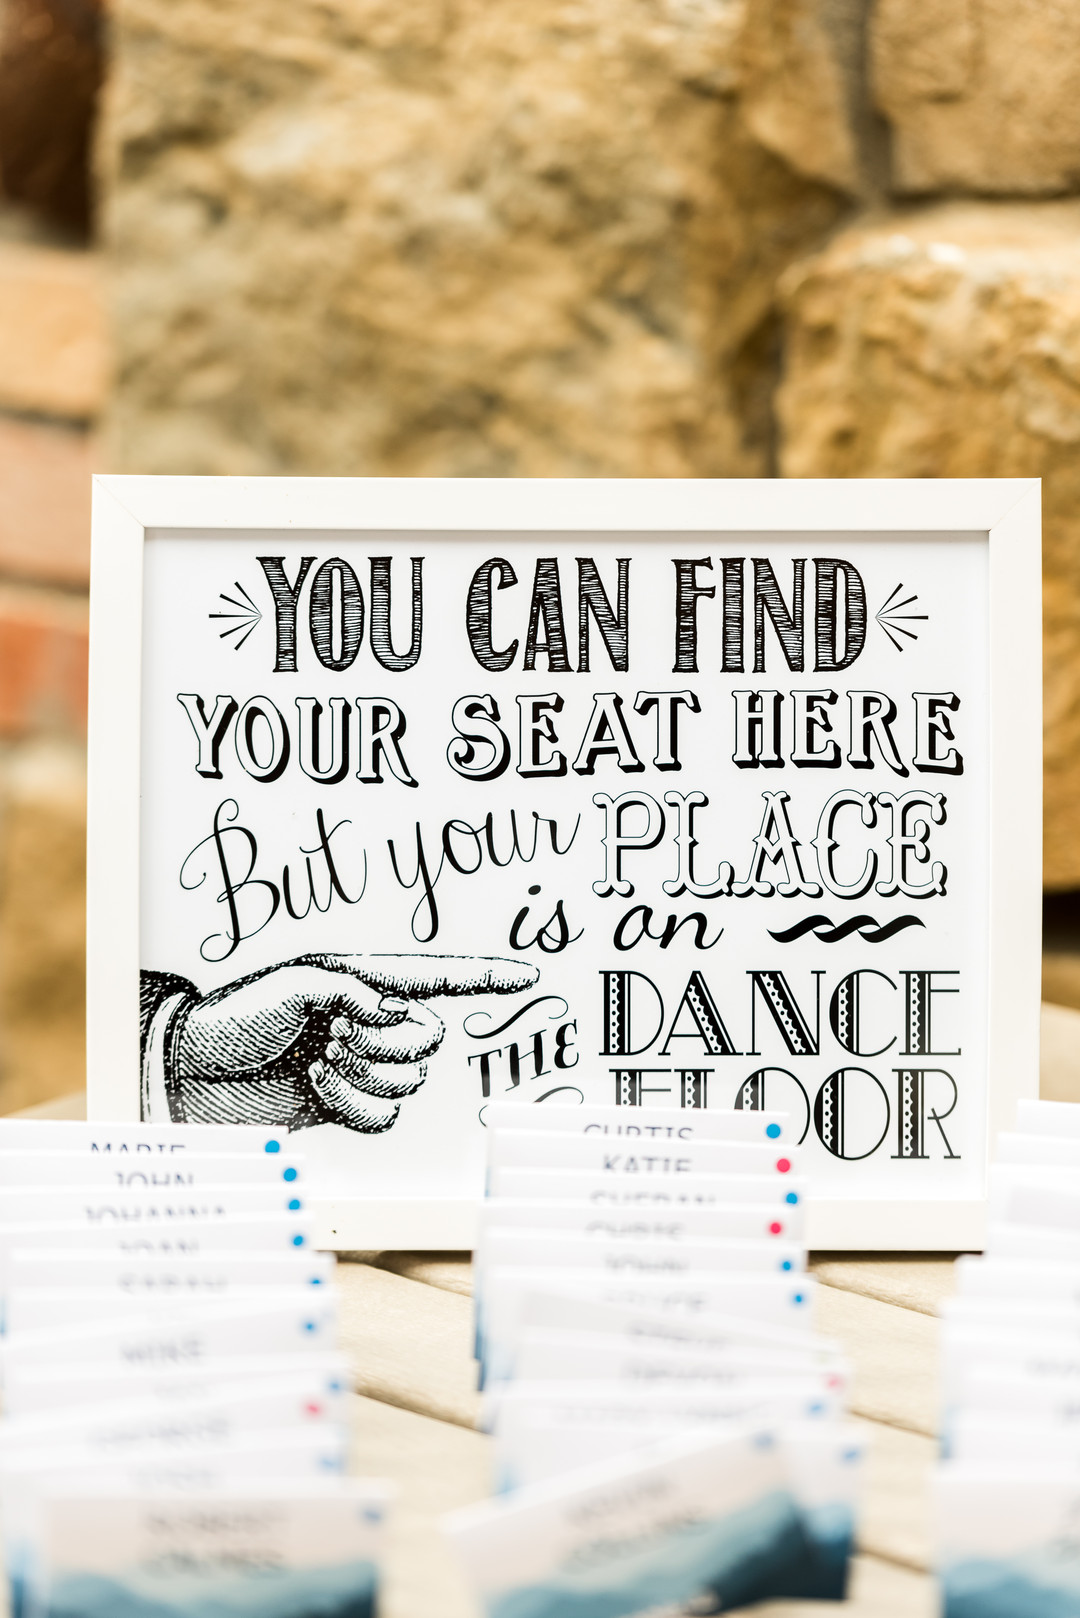 YOU CAN FIND
YOUR SEAT HERE
But your PLACE
is on
THE DANCE
FLOOR
MARIE
JOHN
JOHANNA
JOAN
SARAH
MIKE
CURTIS
KATIE
CHRIS